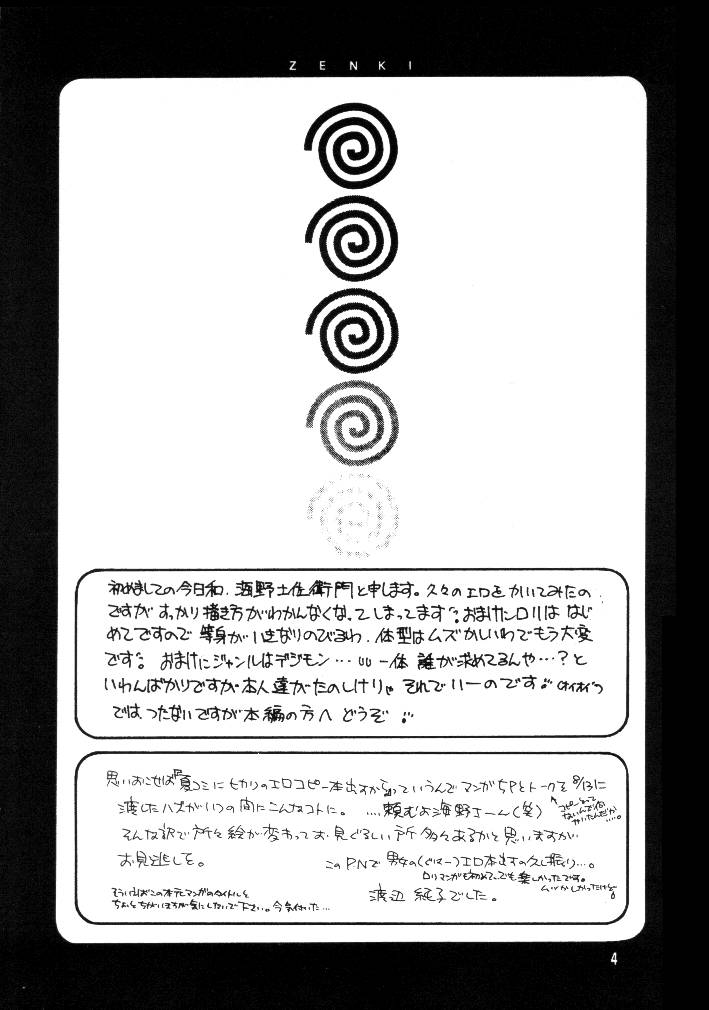 ZENKI
初めましての今日和、海野土佐衛門と申します。久々のエロをかいてみたの
ですが すっかり描き方がわかんなくなってしまってます。おまけにロリははじ
めてですので 等身がいきなりのびるわ、体型はムズかしいわでもう大変
です。おまけにジャンルはデジモン…一体 誰が求めてるんや…？と
いわんばかりですが本人達がたのしけりゃ それでいーのです
では、つたないですが本編の方へ どうぞ
思いおこせば『夏コミにヒカリのエロコピー本出すから』っていうんでマンガ5Pとトークを 8/13に
渡したハズがいつの間にこんなコトに。 ....頼むよ海野さーん(笑)
そんな訳で所々絵が変わってお見ぐるしい所多々あるかと思いますが
お見逃しを。 このPNで男女のエロ本出すの久し振り…。
ロリマンガも初めてでも楽しかったです。
ムズかしかったけど
渡辺 純子でした。
そういえばこの本とマンガのタイトルと
ちょっとちがいますが気にしないで下さい。今気付いた…
4